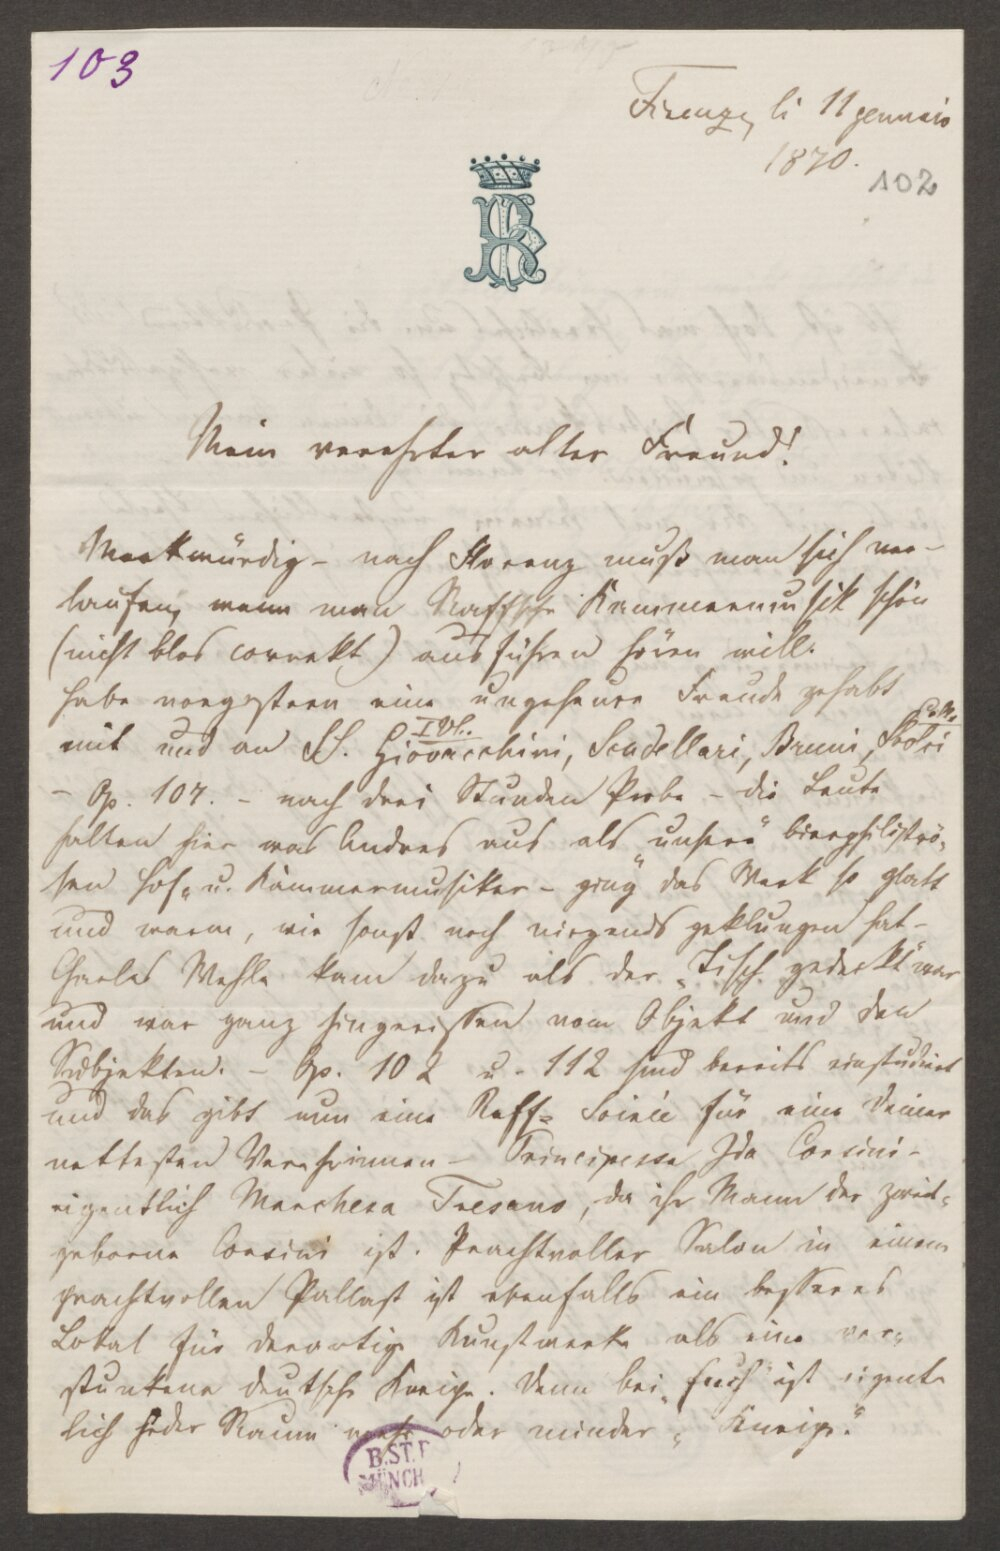 103
Firenze, li 11 gennaio
1870.
102
Mein verehrter alter Freund!
Merkwürdig – nach Florenz muß man sich ver-
laufen, wenn man Raffsche Kammermusik schön
(nicht blos correkt) ausführen hören will.
Habe vorgestern eine ungeheure Freude gehabt
mit und an SS. Giovacchini, Scudellari, Bruni, Sbolci
I Vl.
Cello
– Op. 107. – nach drei Stunden Probe – die Leute
halten hier was Andres aus als unsere bierphiliströ-
sen Hof- u. Kammermusiker – ging das Werk so glatt
und warm, wie sonst noch nirgends geklungen hat –
Charles Wehle kam dazu als der „Tisch gedeckt“ war
und war ganz hingerissen vom Objekt und den
Subjekten. – Op. 102 u. 112 sind bereits einstudiert
und das gibt nun eine Raff-Soirée für eine Deiner
nettesten Verehrinnen – Principessa Ida Corsini –
eigentlich Marchesa Tresana, da ihr Mann der zweit-
geborne Corsini ist. Prachtvoller Salon in einem
prachtvollen Pallast ist ebenfalls ein besseres
Lokal für derartige Kunstwerke als eine ver-
stunkene deutsche Kneipe. Denn bei Euch ist eigent-
lich jeder Raum mehr oder minder „Kneipe.“
B.ST.
MÜNCH